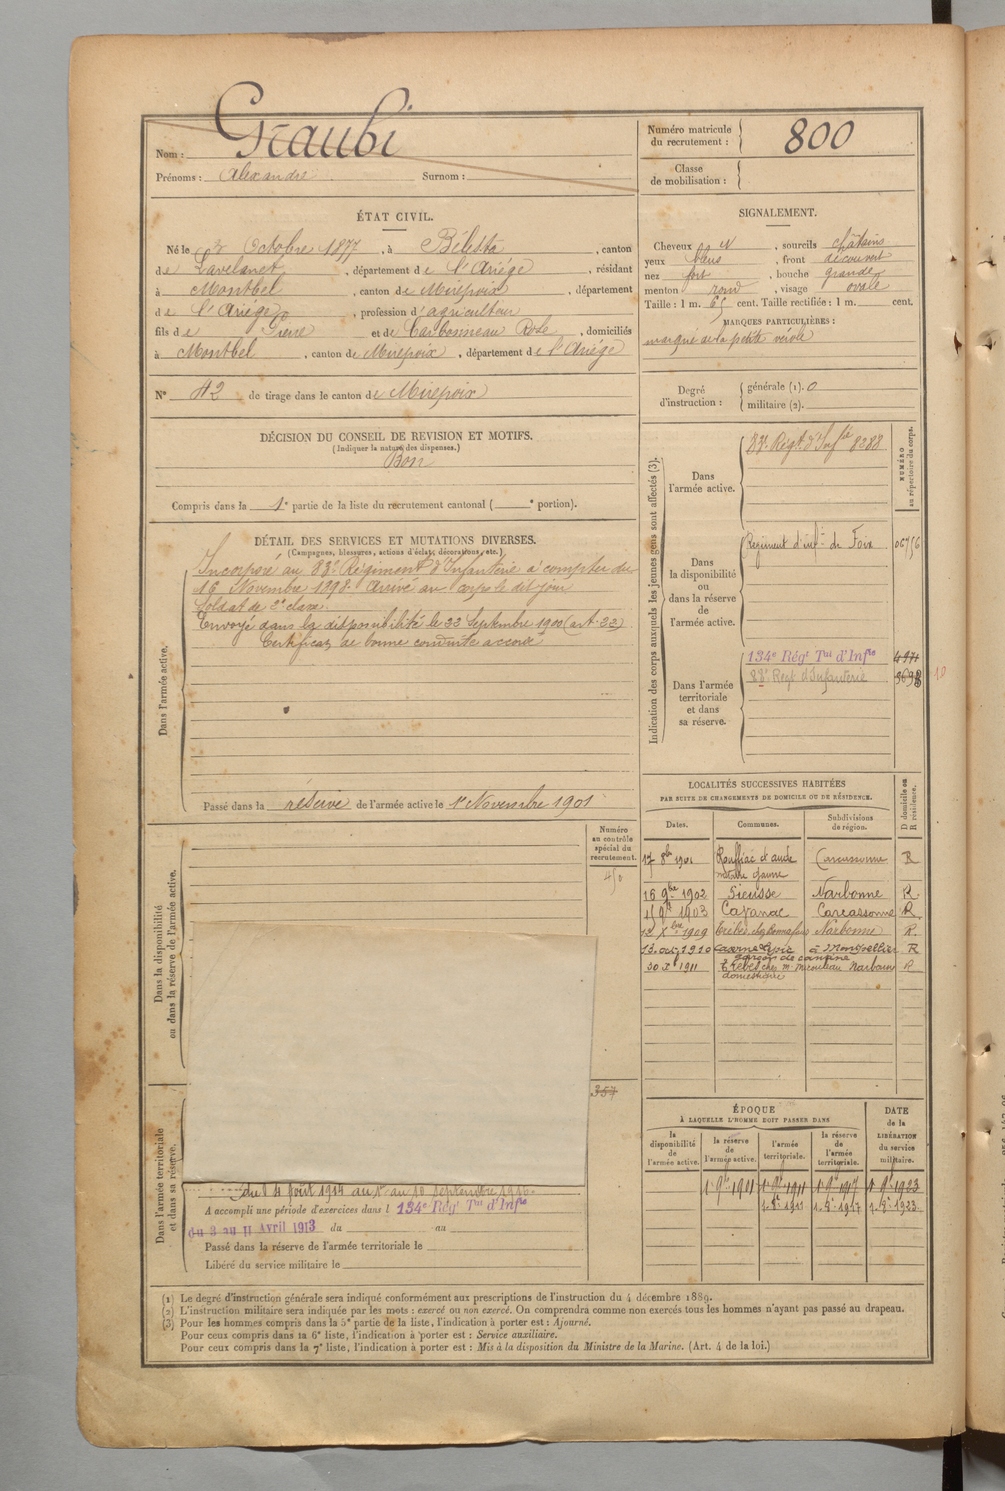 Nom : Graubi
Prénoms : Alexandre Surnom :
Numéro matricule du recrutement : 800
Classe de mobilisation :
ÉTAT CIVIL.
Né le 2 Octobre 1877, à Bélesta, canton
de Lavelanet, département de l'Ariége, résidant
à Montbel, canton de Mirepoix, département
de l'Ariége, profession d'agriculteur
fils de Pierre et de Carbonneau Rose, domiciliés
à Montbel, canton de Mirepoix, département de l'Ariége
N° 42 de tirage dans le canton de Mirepoix
SIGNALEMENT.
Cheveux N, sourcils châtains
yeux bleus, front découvert
nez fort, bouche grande
menton rond, visage ovale
Taille : 1 m. 65 cent. Taille rectifiée : 1 m. cent.
MARQUES PARTICULIÈRES :
marqué de la petite vérole
Degré d'instruction : générale (1). 0
militaire (2).
DÉCISION DU CONSEIL DE REVISION ET MOTIFS.
(Indiquer la nature des dispenses.)
Bon
Compris dans la 1e partie de la liste du recrutement cantonal ( e portion).
DÉTAIL DES SERVICES ET MUTATIONS DIVERSES.
(Campagnes, blessures, actions d'éclat, décorations, etc.)
Dans l'armée active.
Incorporé au 83e Régiment d'Infanterie à compter du
16 Novembre 1898. Arrivé au corps le dit jour
Soldat de 2e classe.
Envoyé dans la disponibilité le 22 Septembre 1900 (art. 22)
Certificat de bonne conduite accordé
Passé dans la réserve de l'armée active le 1er Novembre 1901
Indication des corps auxquels les jeunes gens sont affectés (3).
NUMÉRO au répertoire du corps.
Dans l'armée active.
83e Régt d'Infie 8288
Dans la disponibilité ou dans la réserve de l'armée active.
Régiment d'infie de Foix
Dans l'armée territoriale et dans sa réserve.
134e Régt Tal d'Infie 4971
83e Régt d'Infanterie
10
LOCALITÉS SUCCESSIVES HABITÉES
PAR SUITE DE CHANGEMENTS DE DOMICILE OU DE RÉSIDENCE.
Dates. Communes. Subdivisions de région. D domicile ou R résidence.
17 8bre 1901 Rouffiac d'aude Carcassonne R
16 9bre 1902 Sieusse Narbonne R.
1903 Cazanac Carcassonne R.
12 Xbre 1909 Trèbes Narbonne R.
1910 à Montpellier R
garçon de cantine
30 X 1911 Trèbes chez Mr Narbonne R
domestique
Numéro au contrôle spécial du recrutement.
Dans la disponibilité ou dans la réserve de l'armée active.
357
Dans l'armée territoriale et dans sa réserve.
du 4 Août 1914 au 10 septembre 1916.
A accompli une période d'exercices dans l 134e Régt Tal d'Infie
du 3 au 11 Avril 1913 du au
Passé dans la réserve de l'armée territoriale le
Libéré du service militaire le
ÉPOQUE
À LAQUELLE L'HOMME DOIT PASSER DANS
DATE de la LIBÉRATION du service militaire.
la disponibilité de l'armée active. la réserve de l'armée active. l'armée territoriale. la réserve de l'armée territoriale.
1 9bre 1901 1 9bre 1911 1 9bre 1917 1 9bre 1923
1. 8e 1911 1. 8e 1917 1. 8e 1923
(1) Le degré d'instruction générale sera indiqué conformément aux prescriptions de l'instruction du 4 décembre 1889.
(2) L'instruction militaire sera indiquée par les mots : exercé ou non exercé. On comprendra comme non exercés tous les hommes n'ayant pas passé au drapeau.
(3) Pour les hommes compris dans la 5e partie de la liste, l'indication à porter est : Ajourné.
Pour ceux compris dans la 6e liste, l'indication à porter est : Service auxiliaire.
Pour ceux compris dans la 7e liste, l'indication à porter est : Mis à la disposition du Ministre de la Marine. (Art. 4 de la loi.)